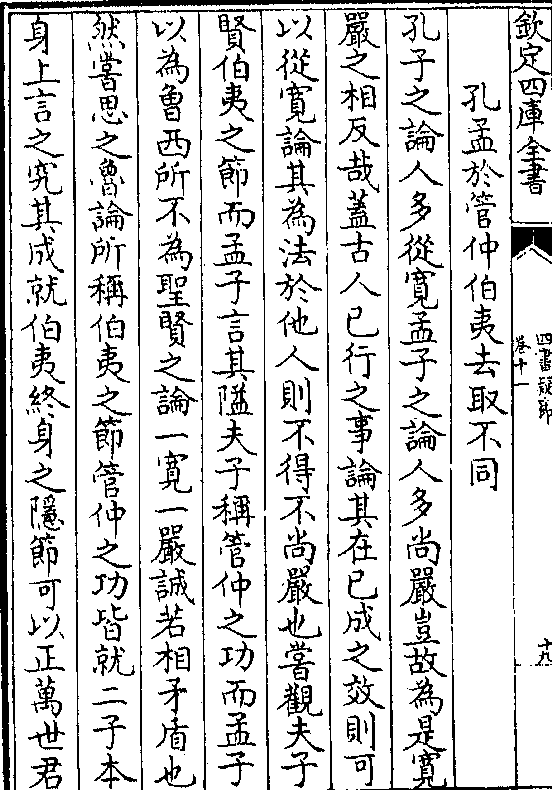 欽定四庫全書
四書疑節
卷十一
十九
孔孟於管仲伯夷去取不同
孔子之論人多從寛孟子之論人多尚嚴豈故為是寛
嚴之相反哉蓋古人已行之事論其在已成之效則可
以從寛論其為法於他人則不得不尚嚴也嘗觀夫子
賢伯夷之節而孟子言其隘夫子稱管仲之功而孟子
以為曾西所不為聖賢之論一寛一嚴誠若相矛盾也
然嘗思之魯論所稱伯夷之節管仲之功皆就二子本
身上言之究其成就伯夷終身之隱節可以正萬世君